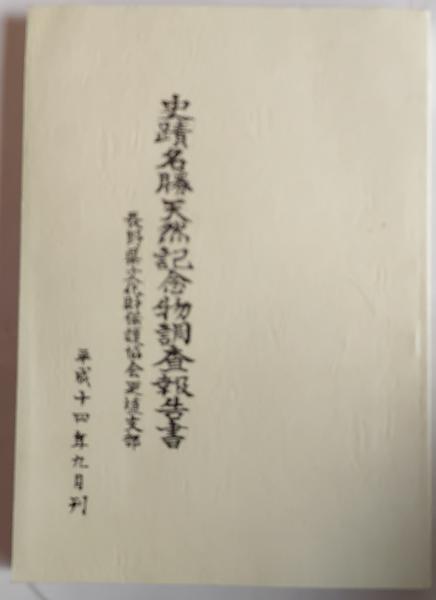 史蹟名勝天然記念物調査報告書
長野県文化財保護協会更埴支部
平成十四年九月刊